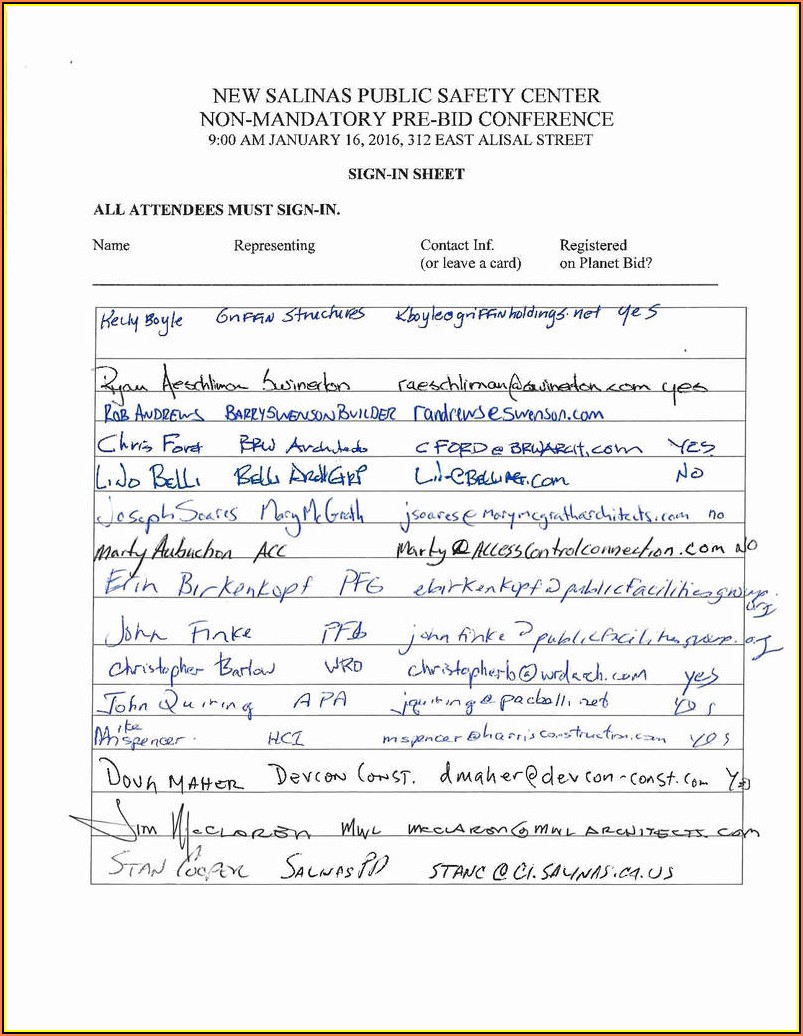 NEW SALINAS PUBLIC SAFETY CENTER
NON-MANDATORY PRE-BID CONFERENCE
9:00 AM JANUARY 16, 2016, 312 EAST ALISAL STREET
SIGN-IN SHEET
ALL ATTENDEES MUST SIGN-IN.
Name Representing Contact Inf. Registered
(or leave a card) on Planet Bid?
Kelly Boyle GRIFFIN Structures kboyle@griffinholdings.net yes
Ryan Aeschliman Swinerton raeschliman@swinerton.com yes
ROB ANDREWS BARRY SWENSON BUILDER randrews@swenson.com
Chris Ford BRW Architects CFORD@BRWARCH.com YES
LINO BELLI BELLI ARCH GRP NO
Joseph Soares Mary McGrath jsoares@marymcgratharchitects.com no
Marty Aubuchon ACC Marty@ACCESSCONTROLCONNECTION.com NO
Erin Birkenkopf PFG ebirkenkopf@publicfacilitiesgroup.org
John Finke PFG johnfinke@publicfacilitiesgroup.org
Christopher Barlow WRD christopherb@wrdarch.com yes
John Quiring APA yes
Mike
Spencer HCI mspencer@harrisconstruction.com yes
DOUG MAHER DEVCON CONST. dmaher@devcon-const.com Yes
Jim McCLAREN MWL MCCLAREN@MWLARCHITECTS.com
STAN COOPER SALINAS PD STANC@CI.SALINAS.CA.US